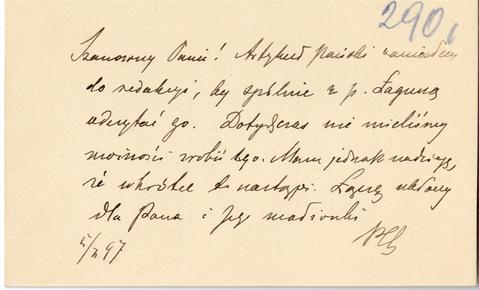 290
Szanowny Panie! Artykuł Pański
do redakcyi, by spólnie z p. Łaguną
odczytać go. Dotychczas nie mieliśmy
możności zrobić tego. Mam jednak nadzieję,
że wkrótce to nastąpi. Łączę ukłony
dla Pana i Jego małżonki
5/X 97